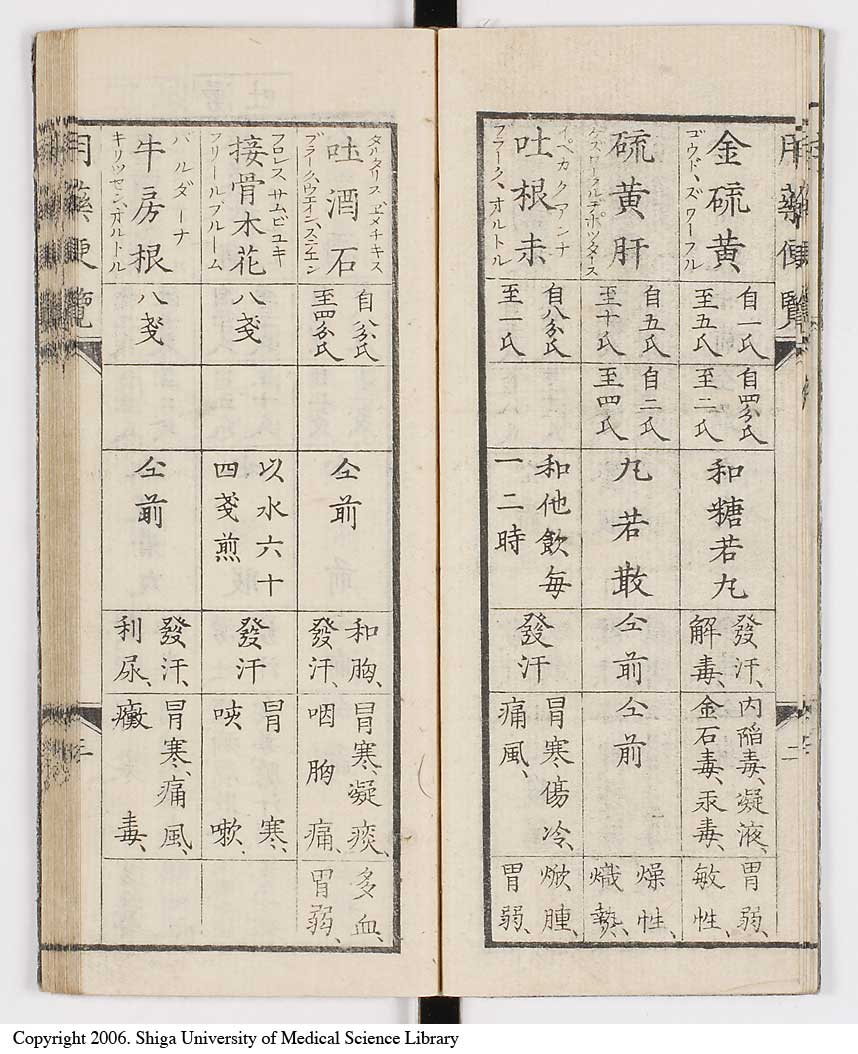 用藥便覽
二
ゴウド、ズワーフル
金硫黄
自一氏
至五氏
自四分氏
至二氏
和糖若丸
發汗、
解毒、
内陷毒、凝液、
金石毒、汞毒、
胃弱、
敏性、
硫黄肝
自五氏
至十氏
自二氏
至四氏
丸若散
仝前
仝前
燥性、
熾熱、
イペカクアンナ
吐根
ブラーク、オルトル
自八分氏
至一氏
和他飲每
一二時
發汗
冒寒、傷冷、
痛風、
焮腫、
胃弱、
タルタリス ヱメチキス
吐酒石
自八分氏
至四分氏
仝前
和胸、
發汗、
冒寒、凝痰、
咽胸痛、
多血、
胃弱、
フロレス サムビユキ
接骨木花
フリールブルーム
八戔
以水六十
四戔煎
發汗
冒寒、
咳嗽、
バルダーナ
牛房根
キリツセン、オルトル
八戔
仝前
發汗、
利尿、
冒寒、痛風、
黴毒、
用藥便覽
三
Copyright 2006. Shiga University of Medical Science Library